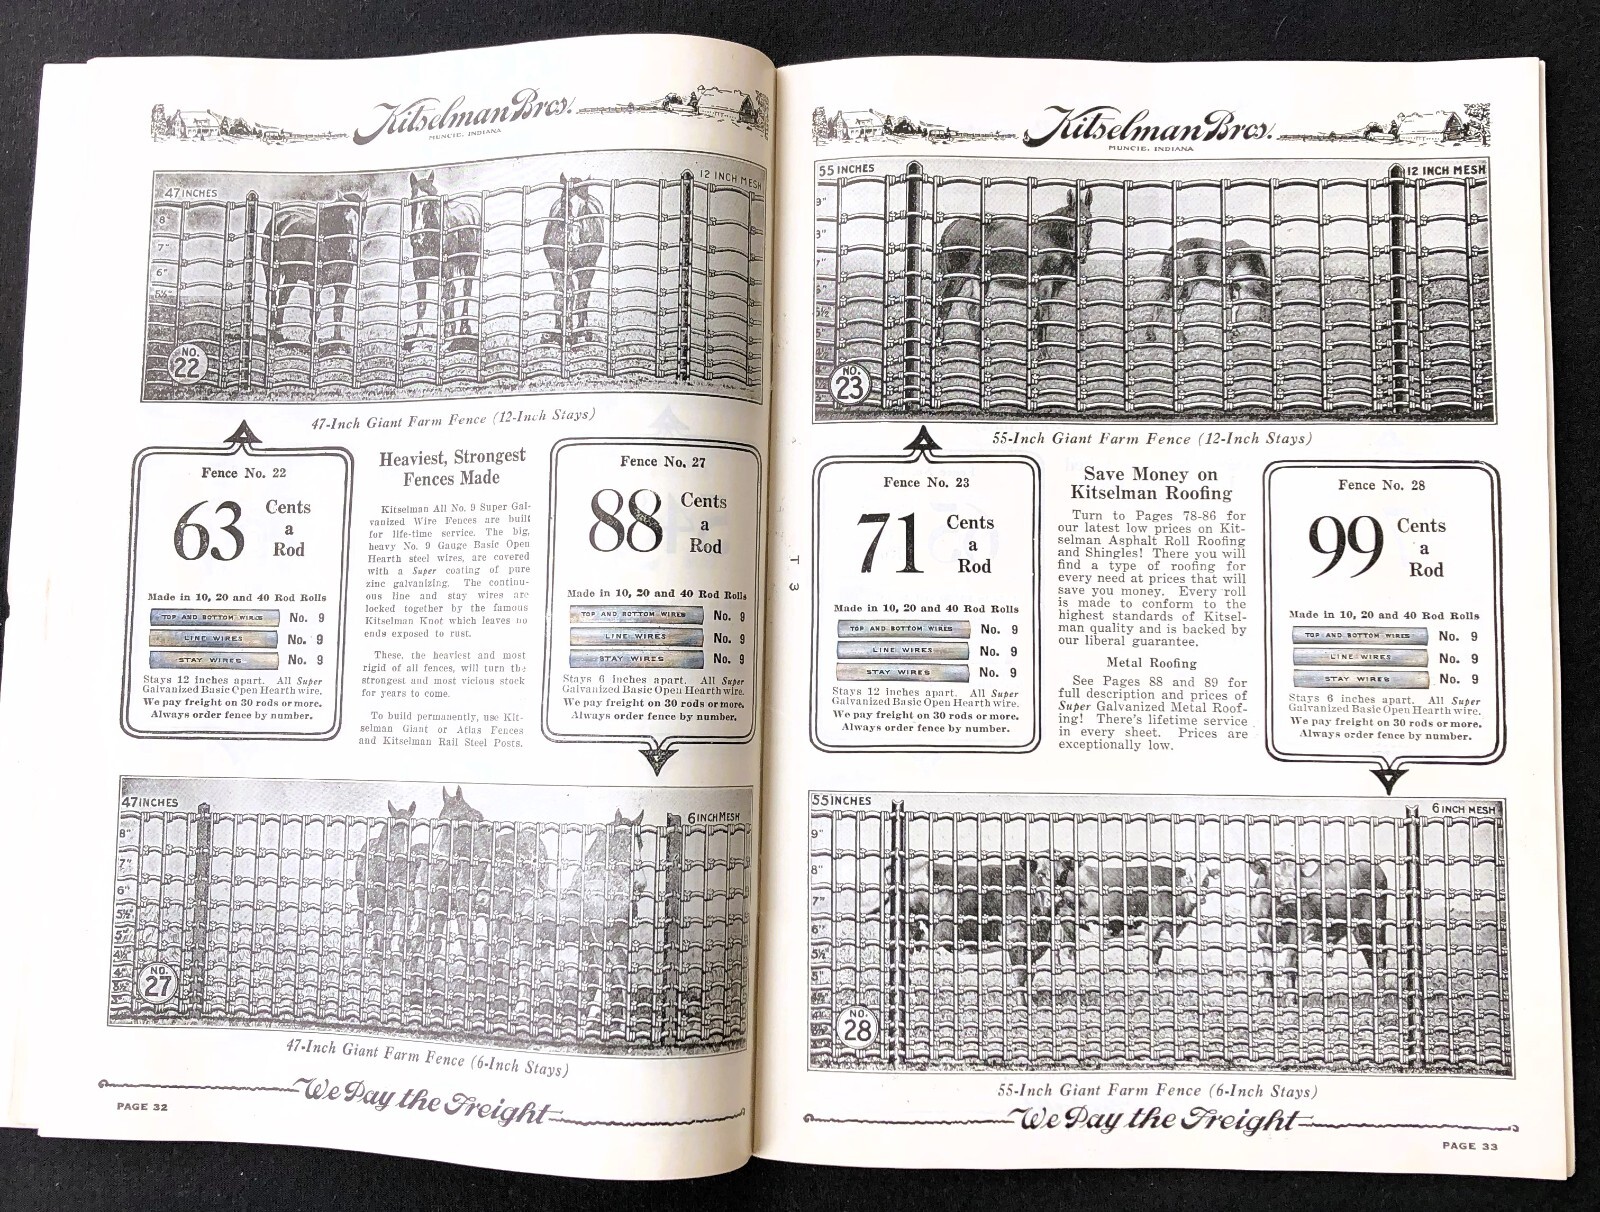 Kitselman Bros.
MUNCIE, INDIANA
47 INCHES
12 INCH MESH
8"
7"
6"
5½"
NO.
22
47-Inch Giant Farm Fence (12-Inch Stays)
Fence No. 22
63
Cents
a
Rod
Made in 10, 20 and 40 Rod Rolls
TOP AND BOTTOM WIRES No. 9
LINE WIRES No. 9
STAY WIRES No. 9
Stays 12 inches apart. All Super
Galvanized Basic Open Hearth wire.
We pay freight on 30 rods or more.
Always order fence by number.
Heaviest, Strongest
Fences Made
Kitselman All No. 9 Super Gal-
vanized Wire Fences are built
for life-time service. The big,
heavy No. 9 Gauge Basic Open
Hearth steel wires, are covered
with a Super coating of pure
zinc galvanizing. The continu-
ous line and stay wires are
locked together by the famous
Kitselman Knot which leaves no
ends exposed to rust.
These, the heaviest and most
rigid of all fences, will turn the
strongest and most vicious stock
for years to come.
To build permanently, use Kit-
selman Giant or Atlas Fences
and Kitselman Rail Steel Posts.
Fence No. 27
88
Cents
a
Rod
Made in 10, 20 and 40 Rod Rolls
TOP AND BOTTOM WIRES No. 9
LINE WIRES No. 9
STAY WIRES No. 9
Stays 6 inches apart. All Super
Galvanized Basic Open Hearth wire.
We pay freight on 30 rods or more.
Always order fence by number.
47 INCHES
6 INCH MESH
8"
7"
6"
5½"
5"
4½"
4"
NO.
27
47-Inch Giant Farm Fence (6-Inch Stays)
We Pay the Freight
PAGE 32
Kitselman Bros.
MUNCIE, INDIANA
55 INCHES
12 INCH MESH
9"
8"
7"
6"
5½"
5"
NO.
23
55-Inch Giant Farm Fence (12-Inch Stays)
T 3
Fence No. 23
71
Cents
a
Rod
Made in 10, 20 and 40 Rod Rolls
TOP AND BOTTOM WIRES No. 9
LINE WIRES No. 9
STAY WIRES No. 9
Stays 12 inches apart. All Super
Galvanized Basic Open Hearth wire.
We pay freight on 30 rods or more.
Always order fence by number.
Save Money on
Kitselman Roofing
Turn to Pages 78-86 for
our latest low prices on Kit-
selman Asphalt Roll Roofing
and Shingles! There you will
find a type of roofing for
every need at prices that will
save you money. Every roll
is made to conform to the
highest standards of Kitsel-
man quality and is backed by
our liberal guarantee.
Metal Roofing
See Pages 88 and 89 for
full description and prices of
Super Galvanized Metal Roof-
ing! There's lifetime service
in every sheet. Prices are
exceptionally low.
Fence No. 28
99
Cents
a
Rod
Made in 10, 20 and 40 Rod Rolls
TOP AND BOTTOM WIRES No. 9
LINE WIRES No. 9
STAY WIRES No. 9
Stays 6 inches apart. All Super
Galvanized Basic Open Hearth wire.
We pay freight on 30 rods or more.
Always order fence by number.
55 INCHES
6 INCH MESH
9"
8"
7"
6"
5½"
5"
NO.
28
55-Inch Giant Farm Fence (6-Inch Stays)
We Pay the Freight
PAGE 33